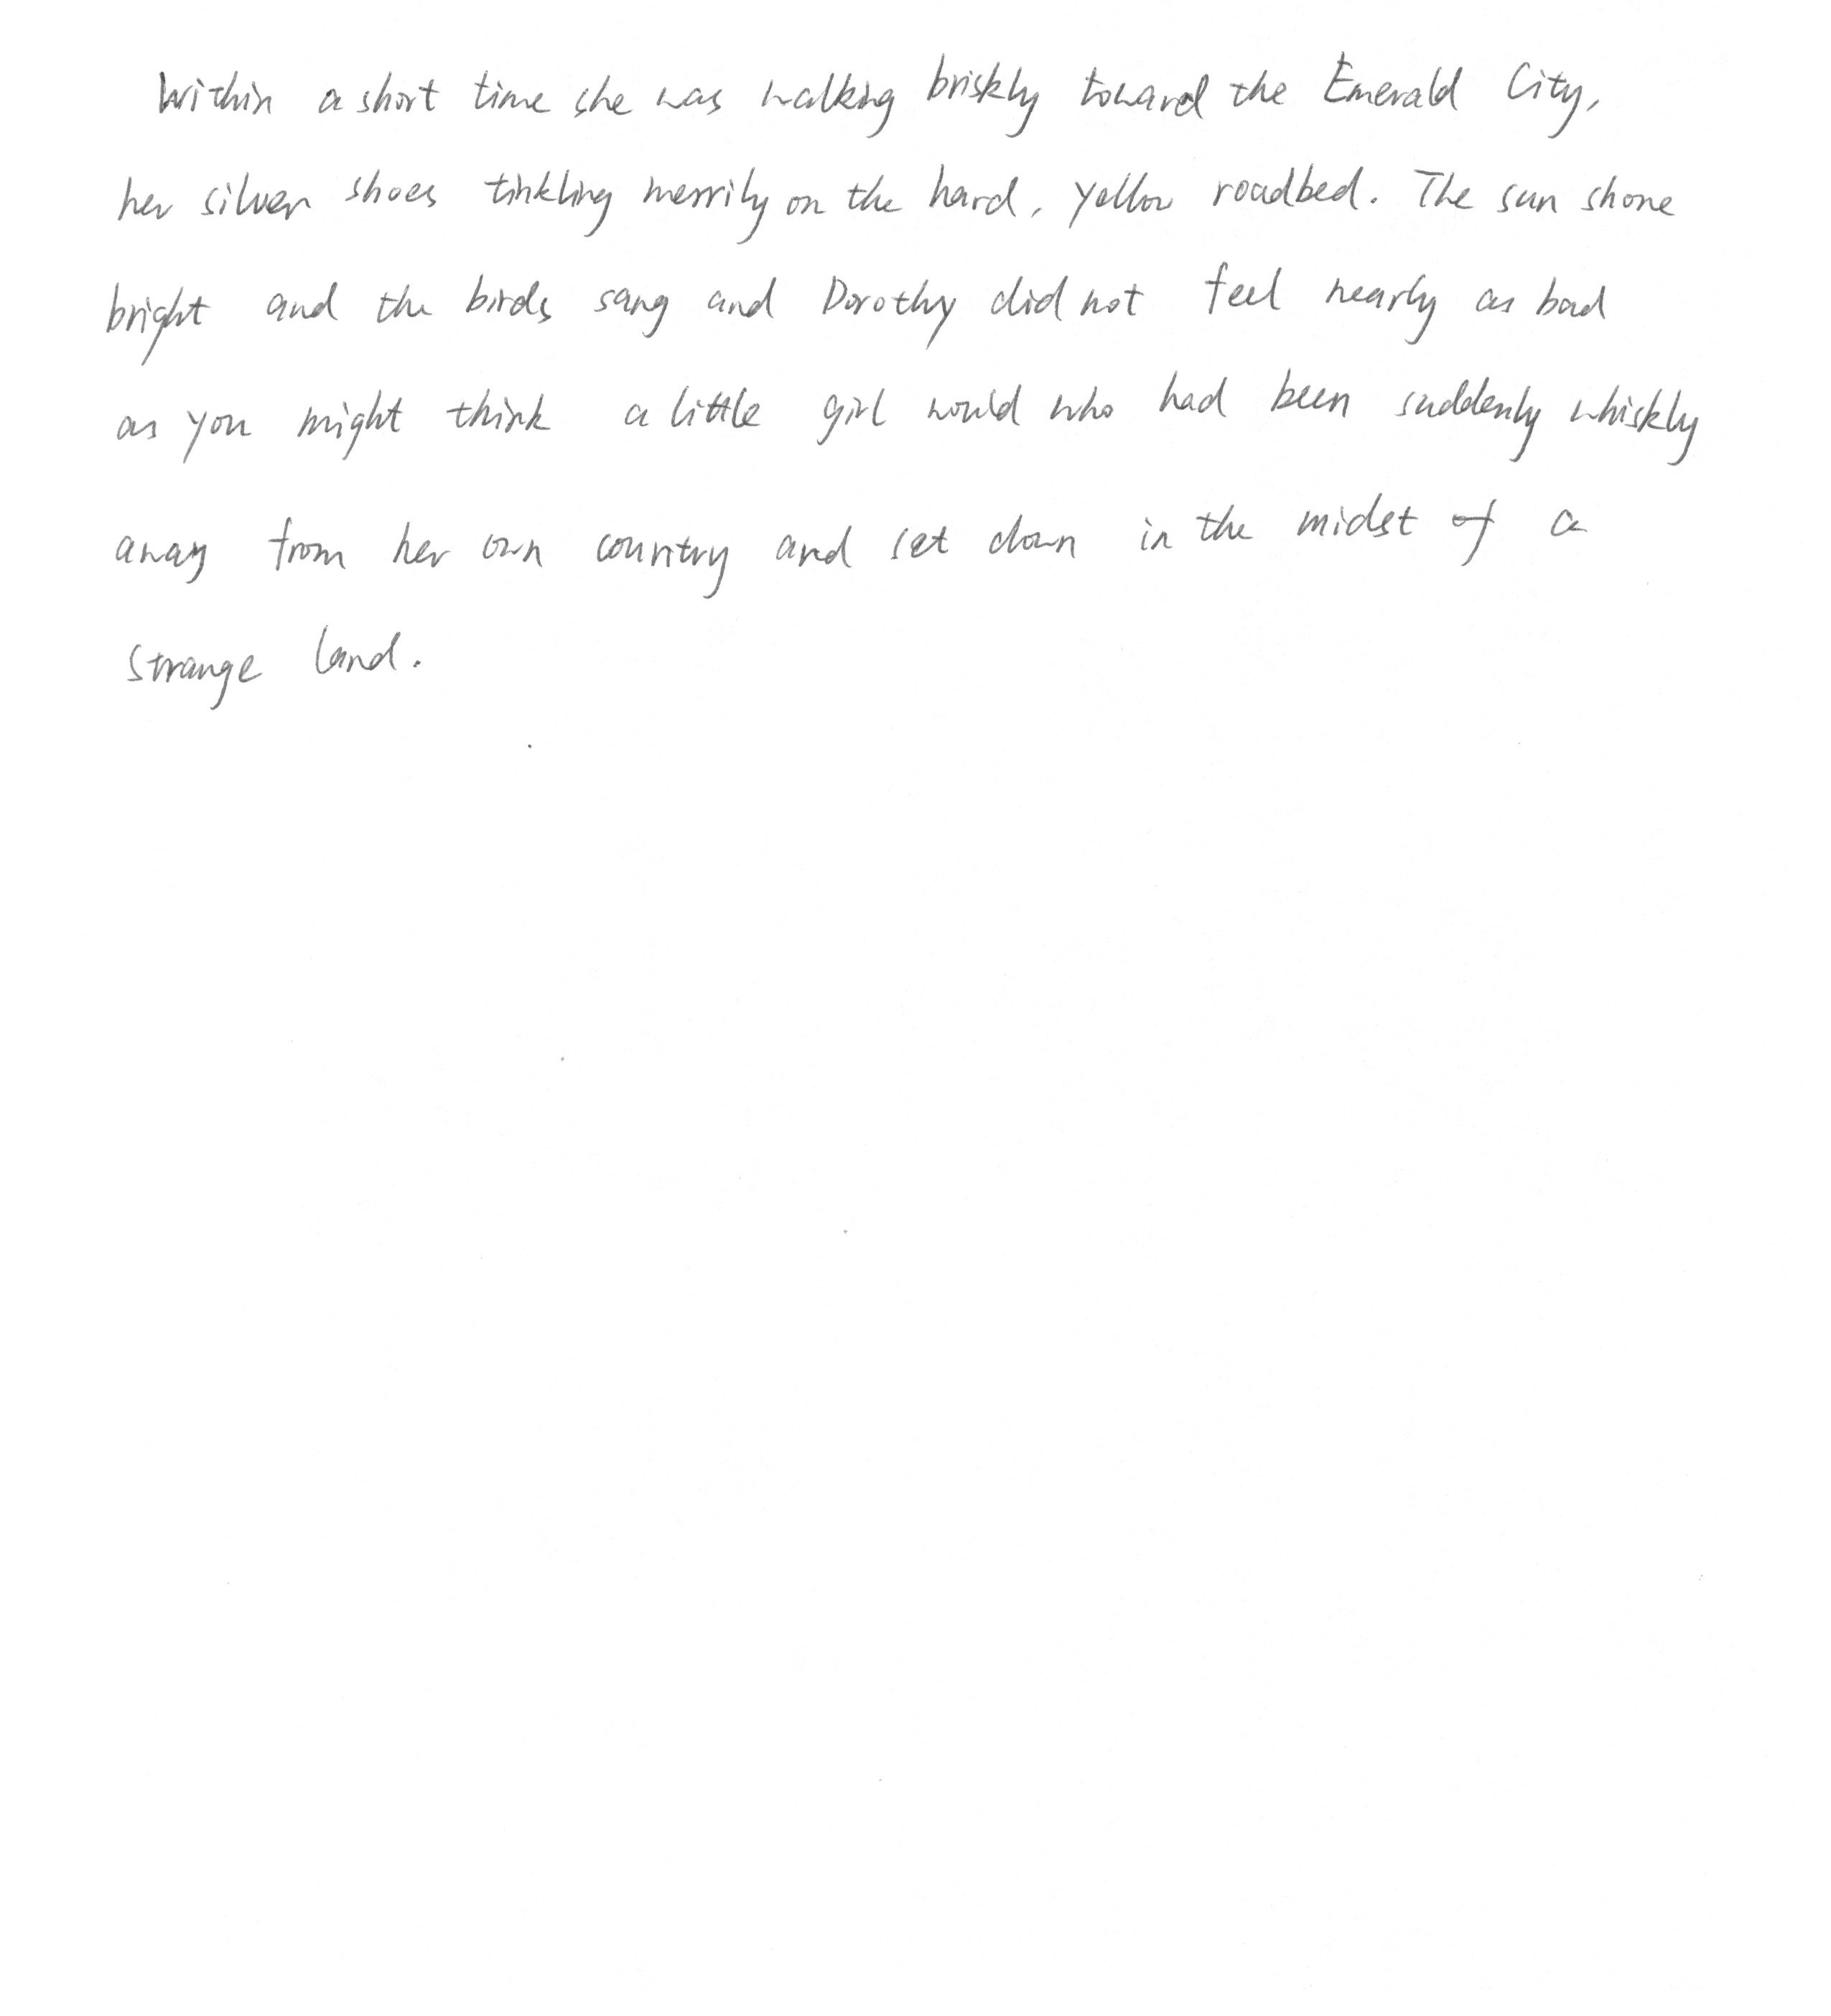 Within a short time she was walking briskly toward the Emerald City,
her silver shoes tinkling merrily on the hard, yellow roadbed. The sun shone
bright and the birds sang and Dorothy did not feel nearly as bad
as you might think a little girl would who had been suddenly whiskly
away from her own country and set down in the midst of a
strange land.